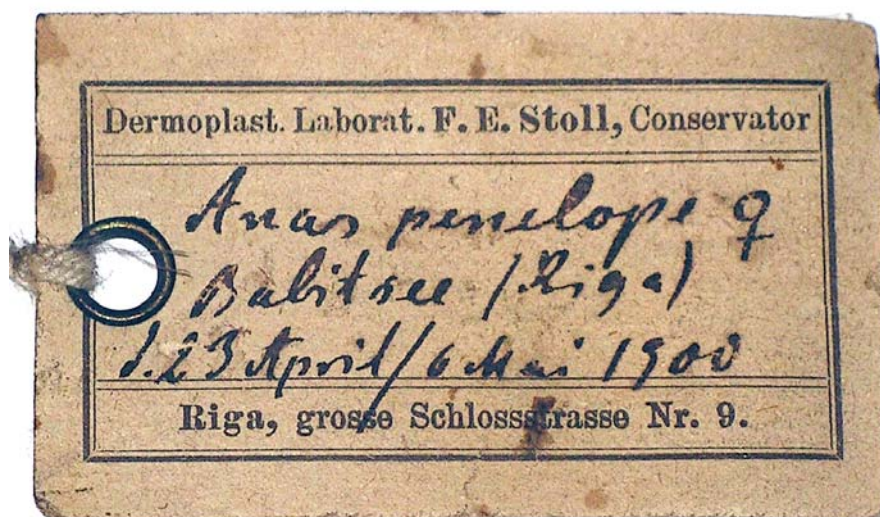 Dermoplast. Laborat. F. E. Stoll, Conservator
Anas penelope ♀
Babitsee (Riga)
d. 23 April/6 Mai 1900
Riga, grosse Schlossstrasse Nr. 9.